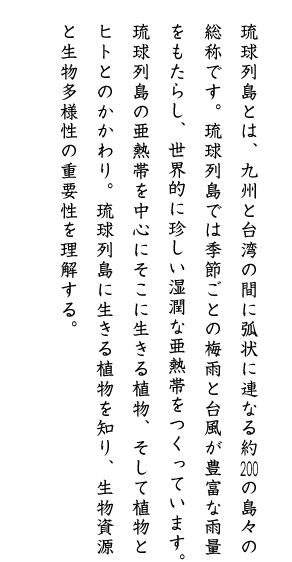 琉球列島とは、九州と台湾の間に弧状に連なる約200の島々の
総称です。琉球列島では季節ごとの梅雨と台風が豊富な雨量
をもたらし、世界的に珍しい湿潤な亜熱帯をつくっています。
琉球列島の亜熱帯を中心にそこに生きる植物、そして植物と
ヒトとのかかわり。琉球列島に生きる植物を知り、生物資源
と生物多様性の重要性を理解する。